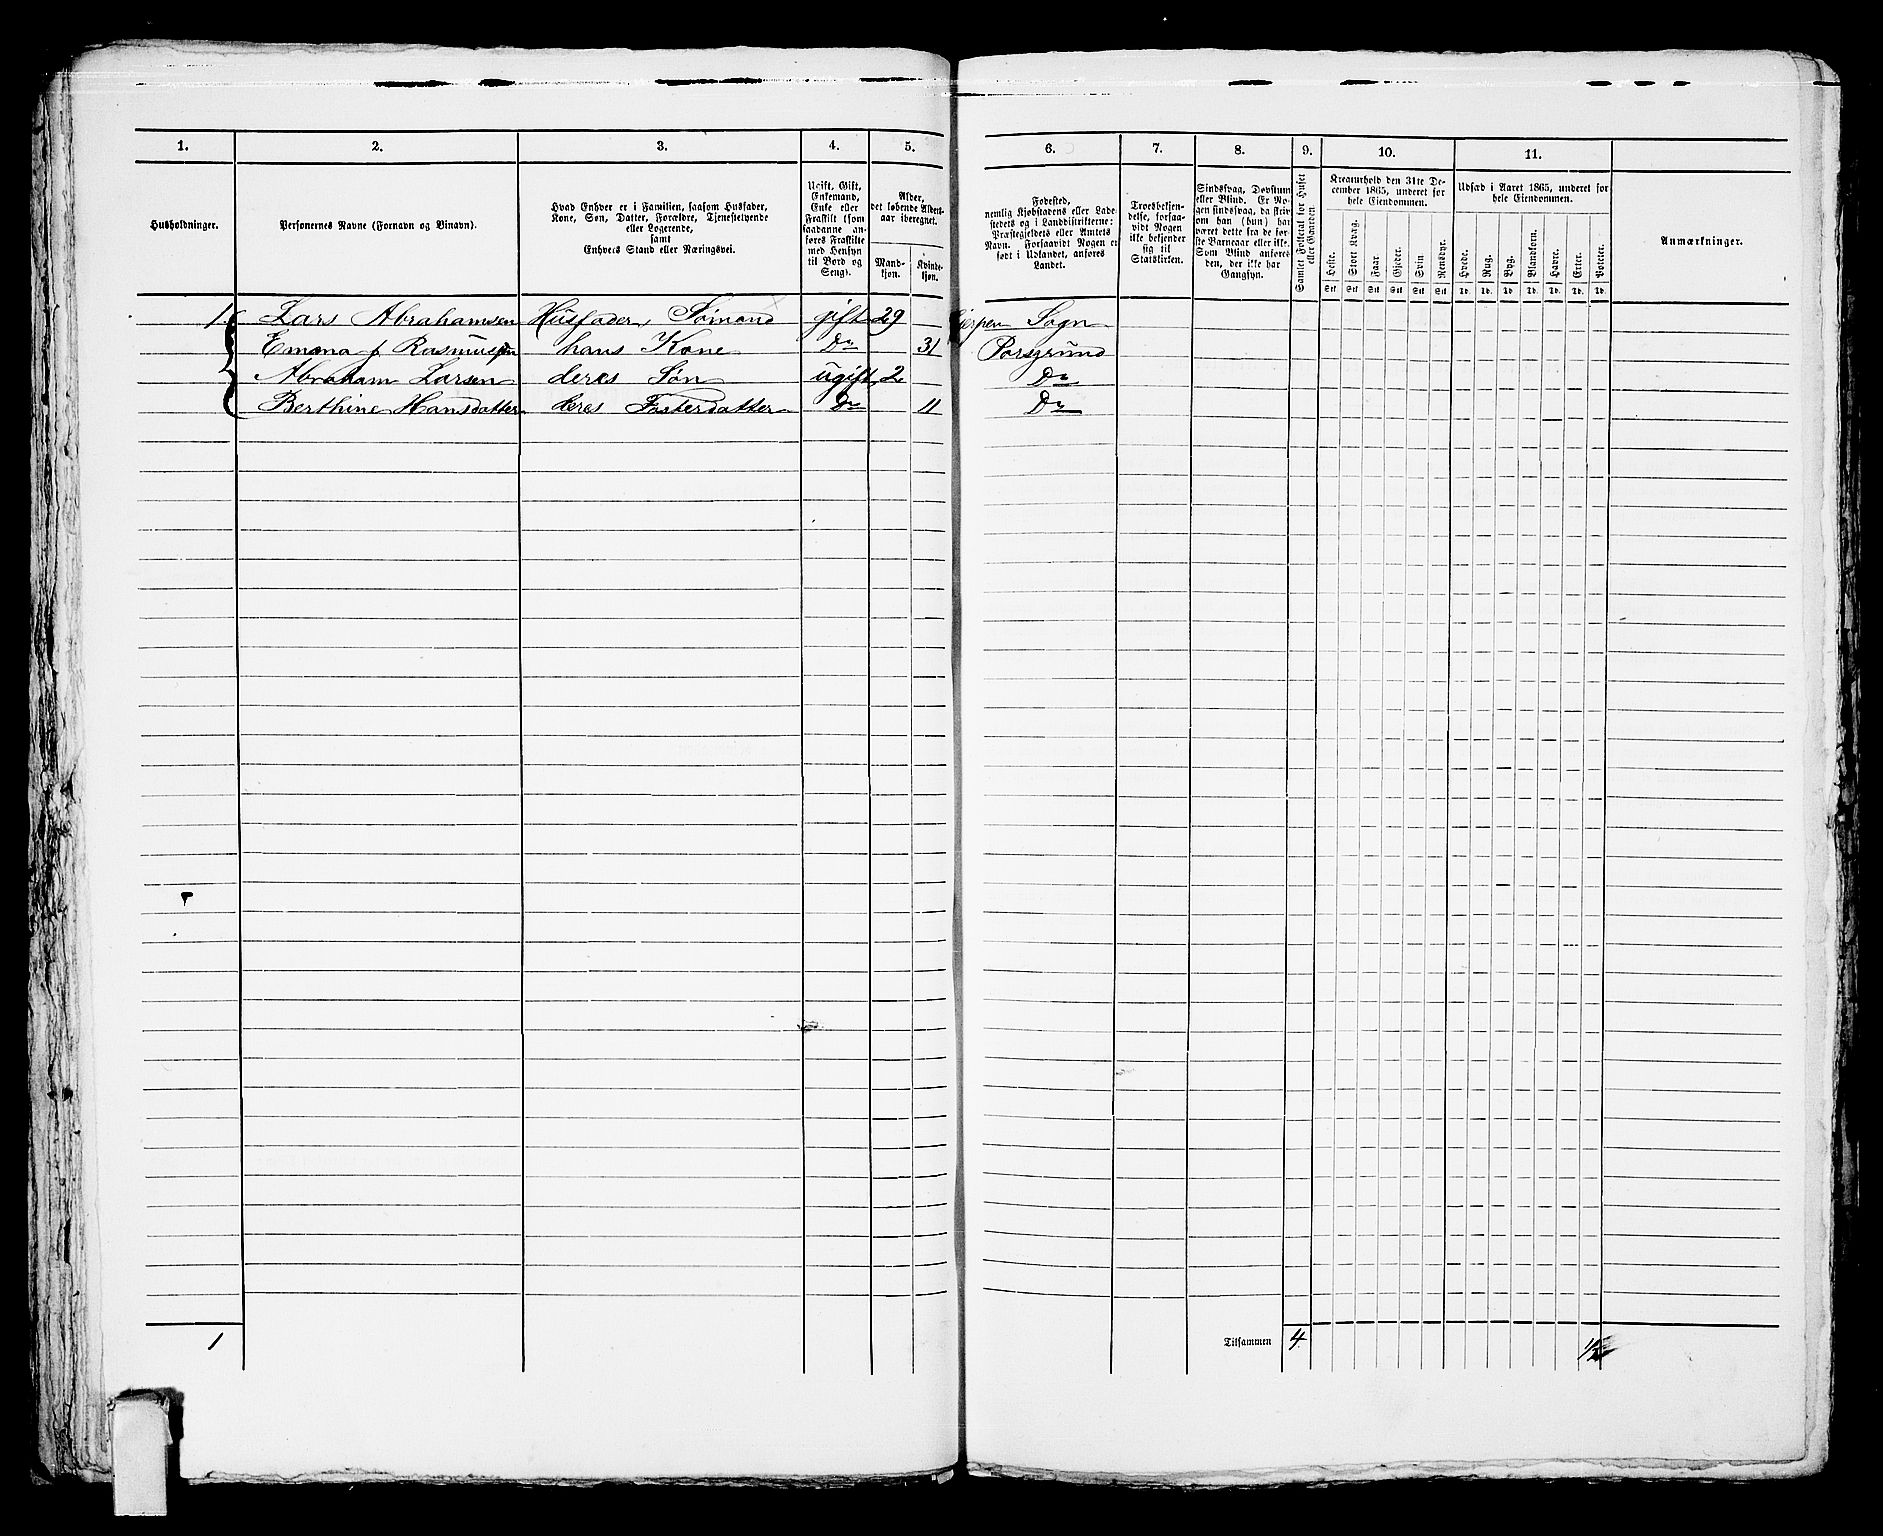 1. 2. 3. 4. 5. 6. 7. 8. 9. 10. 11.
Husholdninger.
Personernes Navne (Fornavn og Binavn).
Hvad Enhver er i Familien, saasom Husfader,
Kone, Søn, Datter, Forældre, Tjenestetyende
eller Logerende,
samt
Enhvers Stand eller Næringsvei.
Ugift, Gift,
Enkemand,
Enke eller
Fraskilt (som
saadanne an-
føres Fraskilte
med Hensyn
til Bord og
Seng).
Alder,
det løbende Alders-
aar iberegnet.
Mand-
kjøn.
Kvinde-
kjøn.
Fødested,
nemlig Kjøbstadens eller Lade-
stedets og i Landdistrikterne:
Præstegjeldets eller Amtets
Navn. Forsaavidt Nogen er
født i Udlandet, anføres
Landet.
Troesbekjen-
delse, forsaa-
vidt Nogen
ikke bekjender
sig til
Statskirken.
Sindssvag, Døvstum
eller Blind. Er No-
gen sindssvag, da skri-
ves om han (hun) har
været dette fra de før-
ste Barneaar eller ikke.
Som Blind anføres
den, der ikke har
Gangsyn.
Samlet Folketal for Huset
eller Gaarden.
Kreaturhold den 31te De-
cember 1865, underet for
hele Eiendommen.
Heste. Stort Kvæg. Faar. Gjeder. Svin Rensdyr.
Stk Stk Stk Stk Stk Stk
Udsæd i Aaret 1865, underet for
hele Eiendommen.
Hvede. Rug. Byg. Blandkorn. Havre. Erter. Poteter.
Td. Td. Td. Td. Td. Td. Td.
Anmærkninger.
1. Lars Abrahamsen Husfader, Sømand gift 29 Gjerpen Sogn
Emma f Rasmussen hans Kone Do 31 Porsgrund
Abraham Larsen deres Søn ugift 2 Do
Berthine Hansdatter deres Fosterdatter Do 11 Do
1 Tilsammen 4